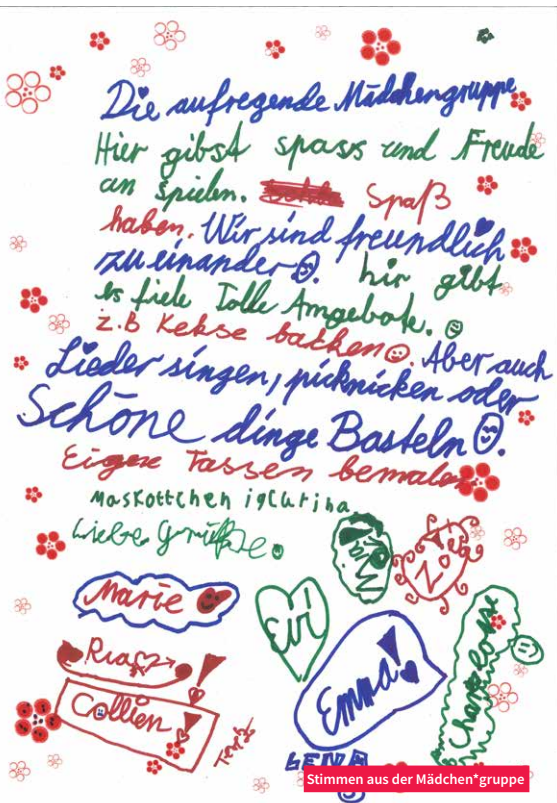 Die aufregende Mädchengruppe
Hier gibst spass und Freude
an spielen. Spaß
haben. Wir sind freundlich
zu einander. hir gibt
es fiele Tolle Amgebote.
z.B Kekse backen. Aber auch
Lieder singen, picknicken oder
Schöne dinge Basteln.
Eigene Tassen bemalen
Maskottchen
Liebe Grüße
Marie
Ria
Evi
Collien
Emma!
Stimmen aus der Mädchen*gruppe